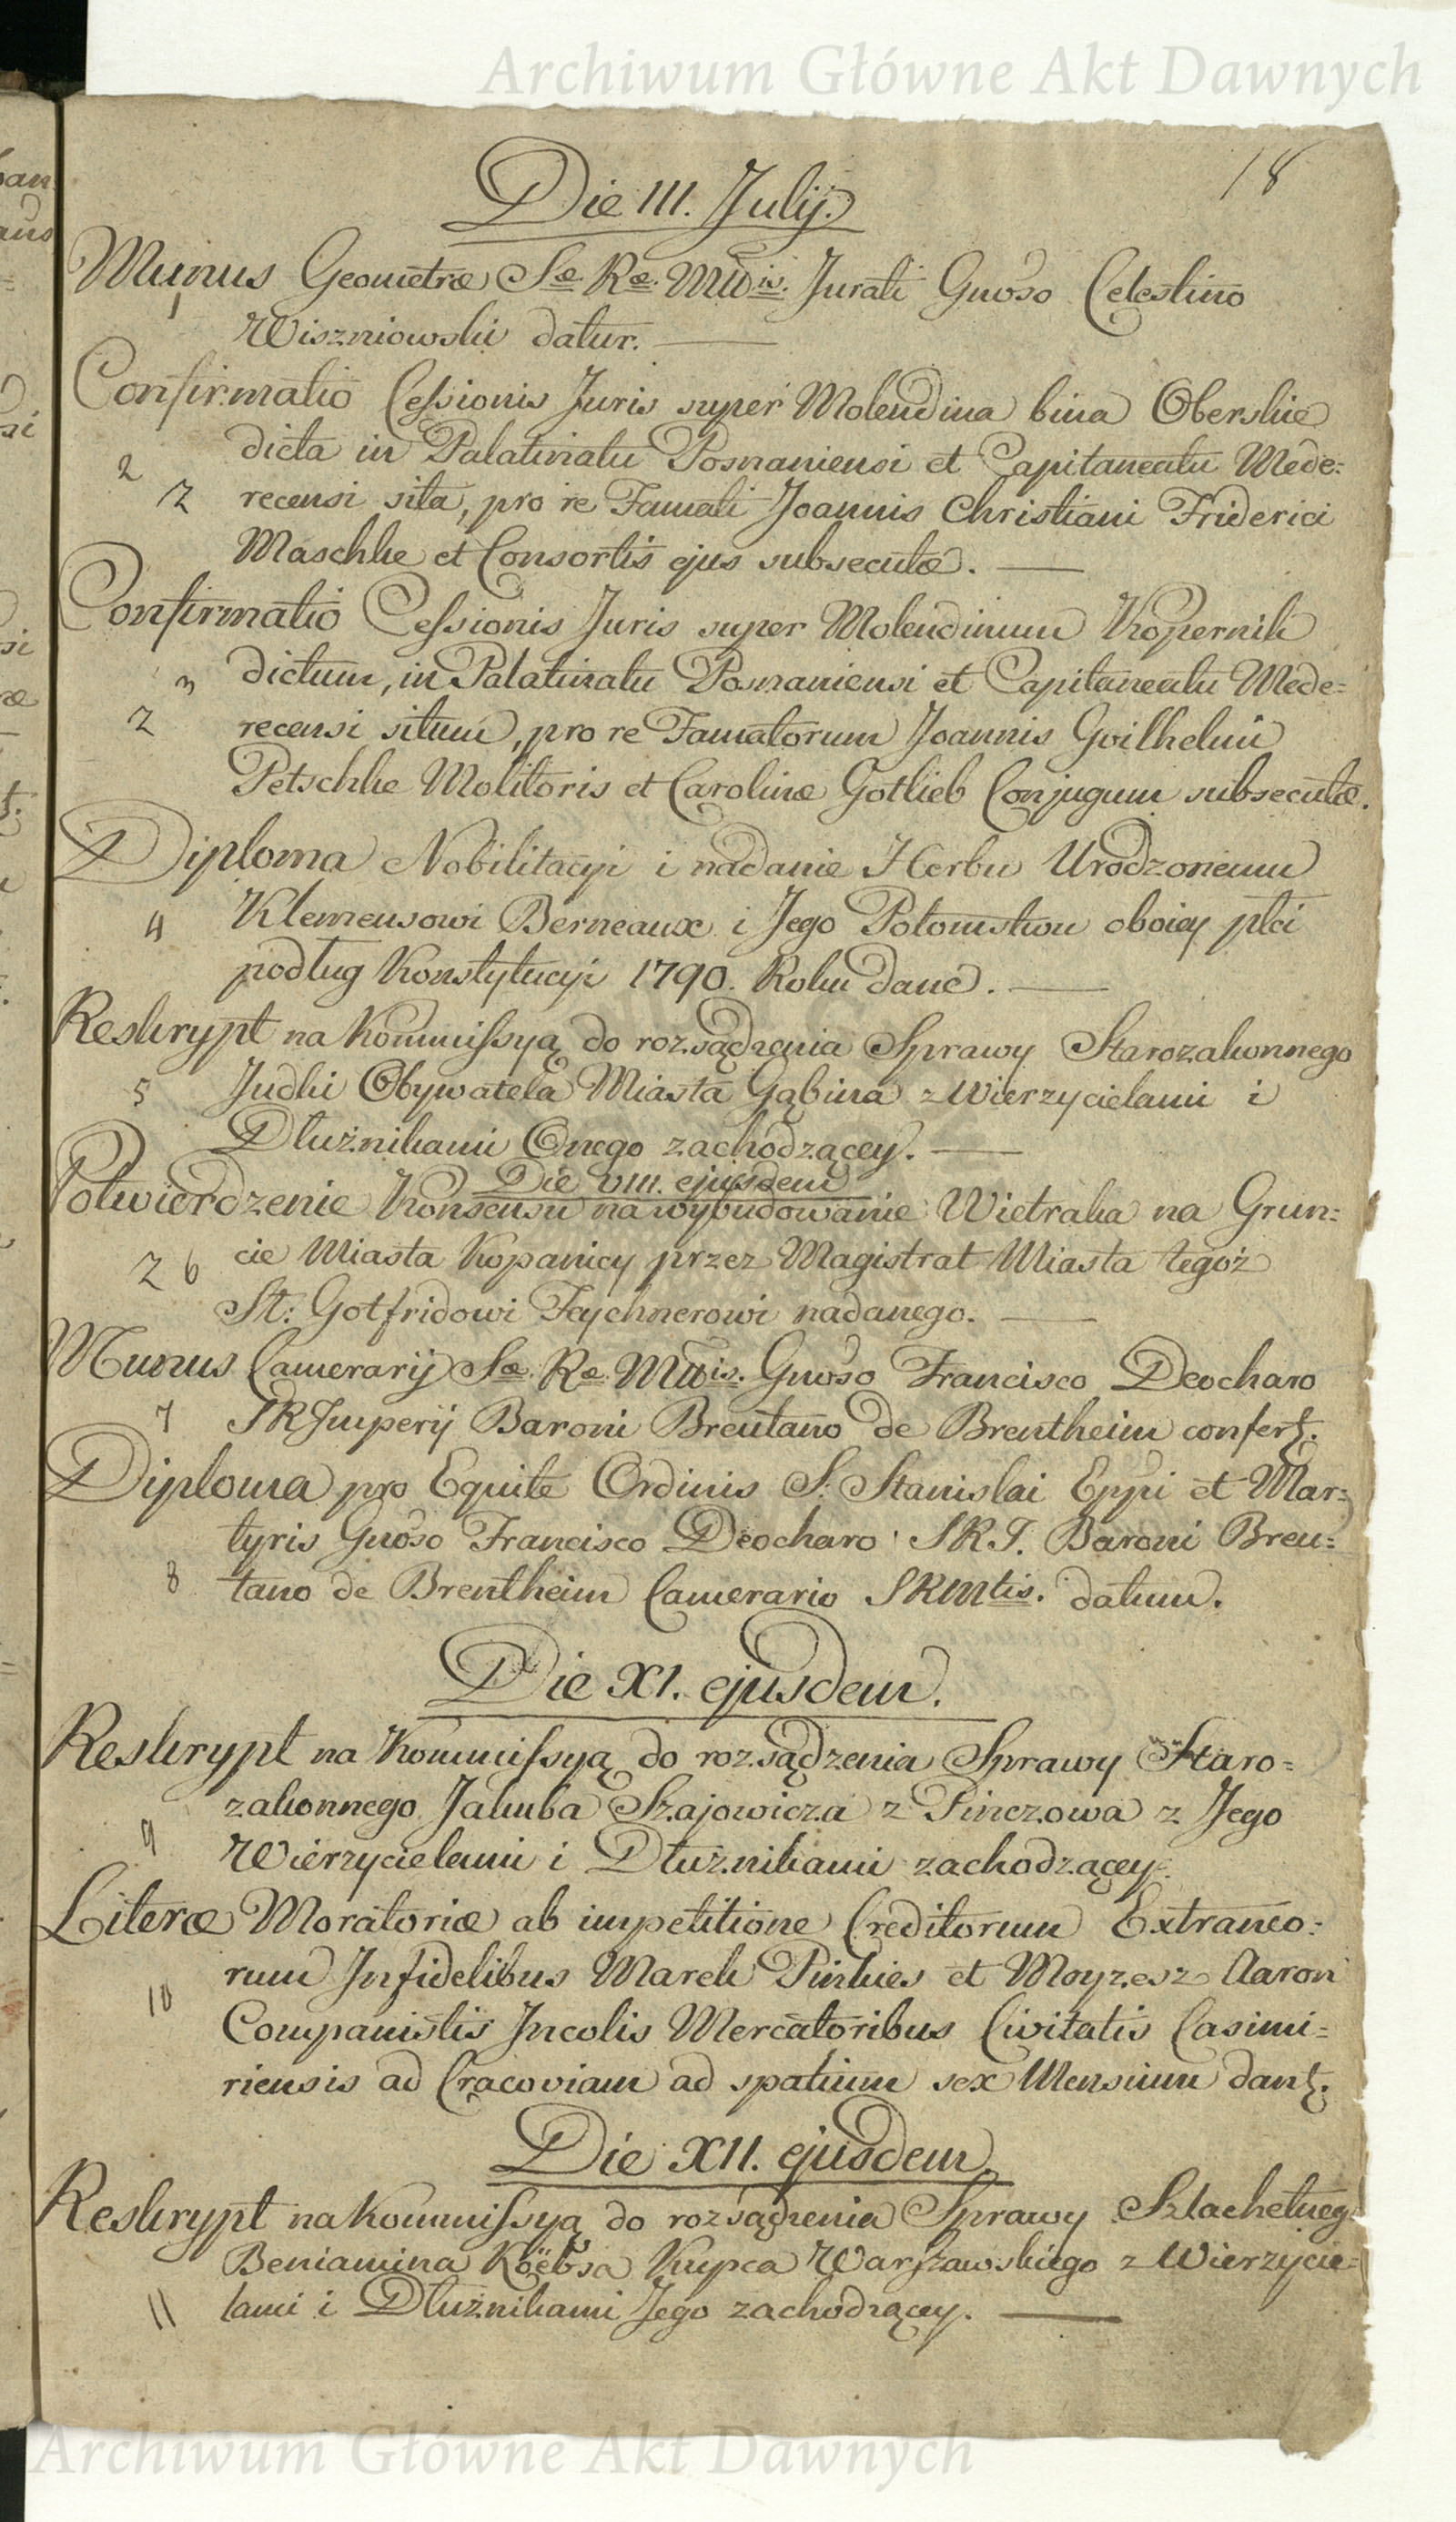 Archiwum Główne Akt Dawnych
18
Die III. Julij.
Munus Geometræ Sæ. Ræ. Mttis. Jurati Gnoso Celestino
1
Wiszniowski datur.
Confirmatio Cessionis Juris super Molendina bina Oberskie
dicta in Palatinatu Posnaniensi et Capitaneatu Mede=
2
Z recensi sita, pro re Famati Joannis Christiani Friderici
Maschke et Consortis ejus subsecutæ.
Confirmatio Cessionis Juris super Molendinum Kopernik
3 dictum, in Palatinatu Posnaniensi et Capitaneatu Mede=
Z recensi situm, pro re Famatorum Joannis Gvilhelmi
Petschke Molitoris et Carolinæ Gotlieb Conjugum subsecutæ.
Diploma Nobilitacyi i nadanie Herbu Urodzonemu
4 Klemensowi Berneaux i Jego Potomstwu oboiey płci
podług Konstytucyi 1790. Roku dane.
Reskrypt na Kommissyą do rozsądzenia Sprawy Starozakonnego
5 Judki Obywatela Miasta Gąbina z Wierzycielami i
Dłużnikami Onego zachodzącey.
Die VIII. ejusdem
Potwierdzenie Konsensu na wybudowanie Wietraka na Grun=
Z 6 cie Miasta Kopanicy przez Magistrat Miasta tegoż
St: Gotfridowi Feychnerowi nadanego.
Munus Camerarij Sæ. Ræ. Mttis. Gnoso Francisco Deocharo
7 SRImperij Baroni Brentano de Brentheim confert.
Diploma pro Equite Ordinis S. Stanislai Eppi et Mar=
tyris Gnoso Francisco Deocharo SRI. Baroni Bren=
8 tano de Brentheim Camerario SRMtis. datum.
Die XI. ejusdem.
Reskrypt na Kommissyą do rozsądzenia Sprawy Staro=
zakonnego Jakuba Szajowicza z Pinczowa z Jego
9 Wierzycielami i Dłużnikami zachodzącey.
Literæ Moratoriæ ab impetitione Creditorum Extraneo=
rum Infidelibus Marek Pinkies et Moyzesz Aaron
10
Companistis Incolis Mercatoribus Civitatis Casimi=
riensis ad Cracoviam ad spatium sex Mensium dant.
Die XII. ejusdem
Reskrypt na Kommissyą do rozsądzenia Sprawy Szlachetneg
Beniamina Koëbsa Kupca Warszawskiego z Wierzycie=
11 lami i Dłużnikami Jego zachodzącey.
Archiwum Główne Akt Dawnych